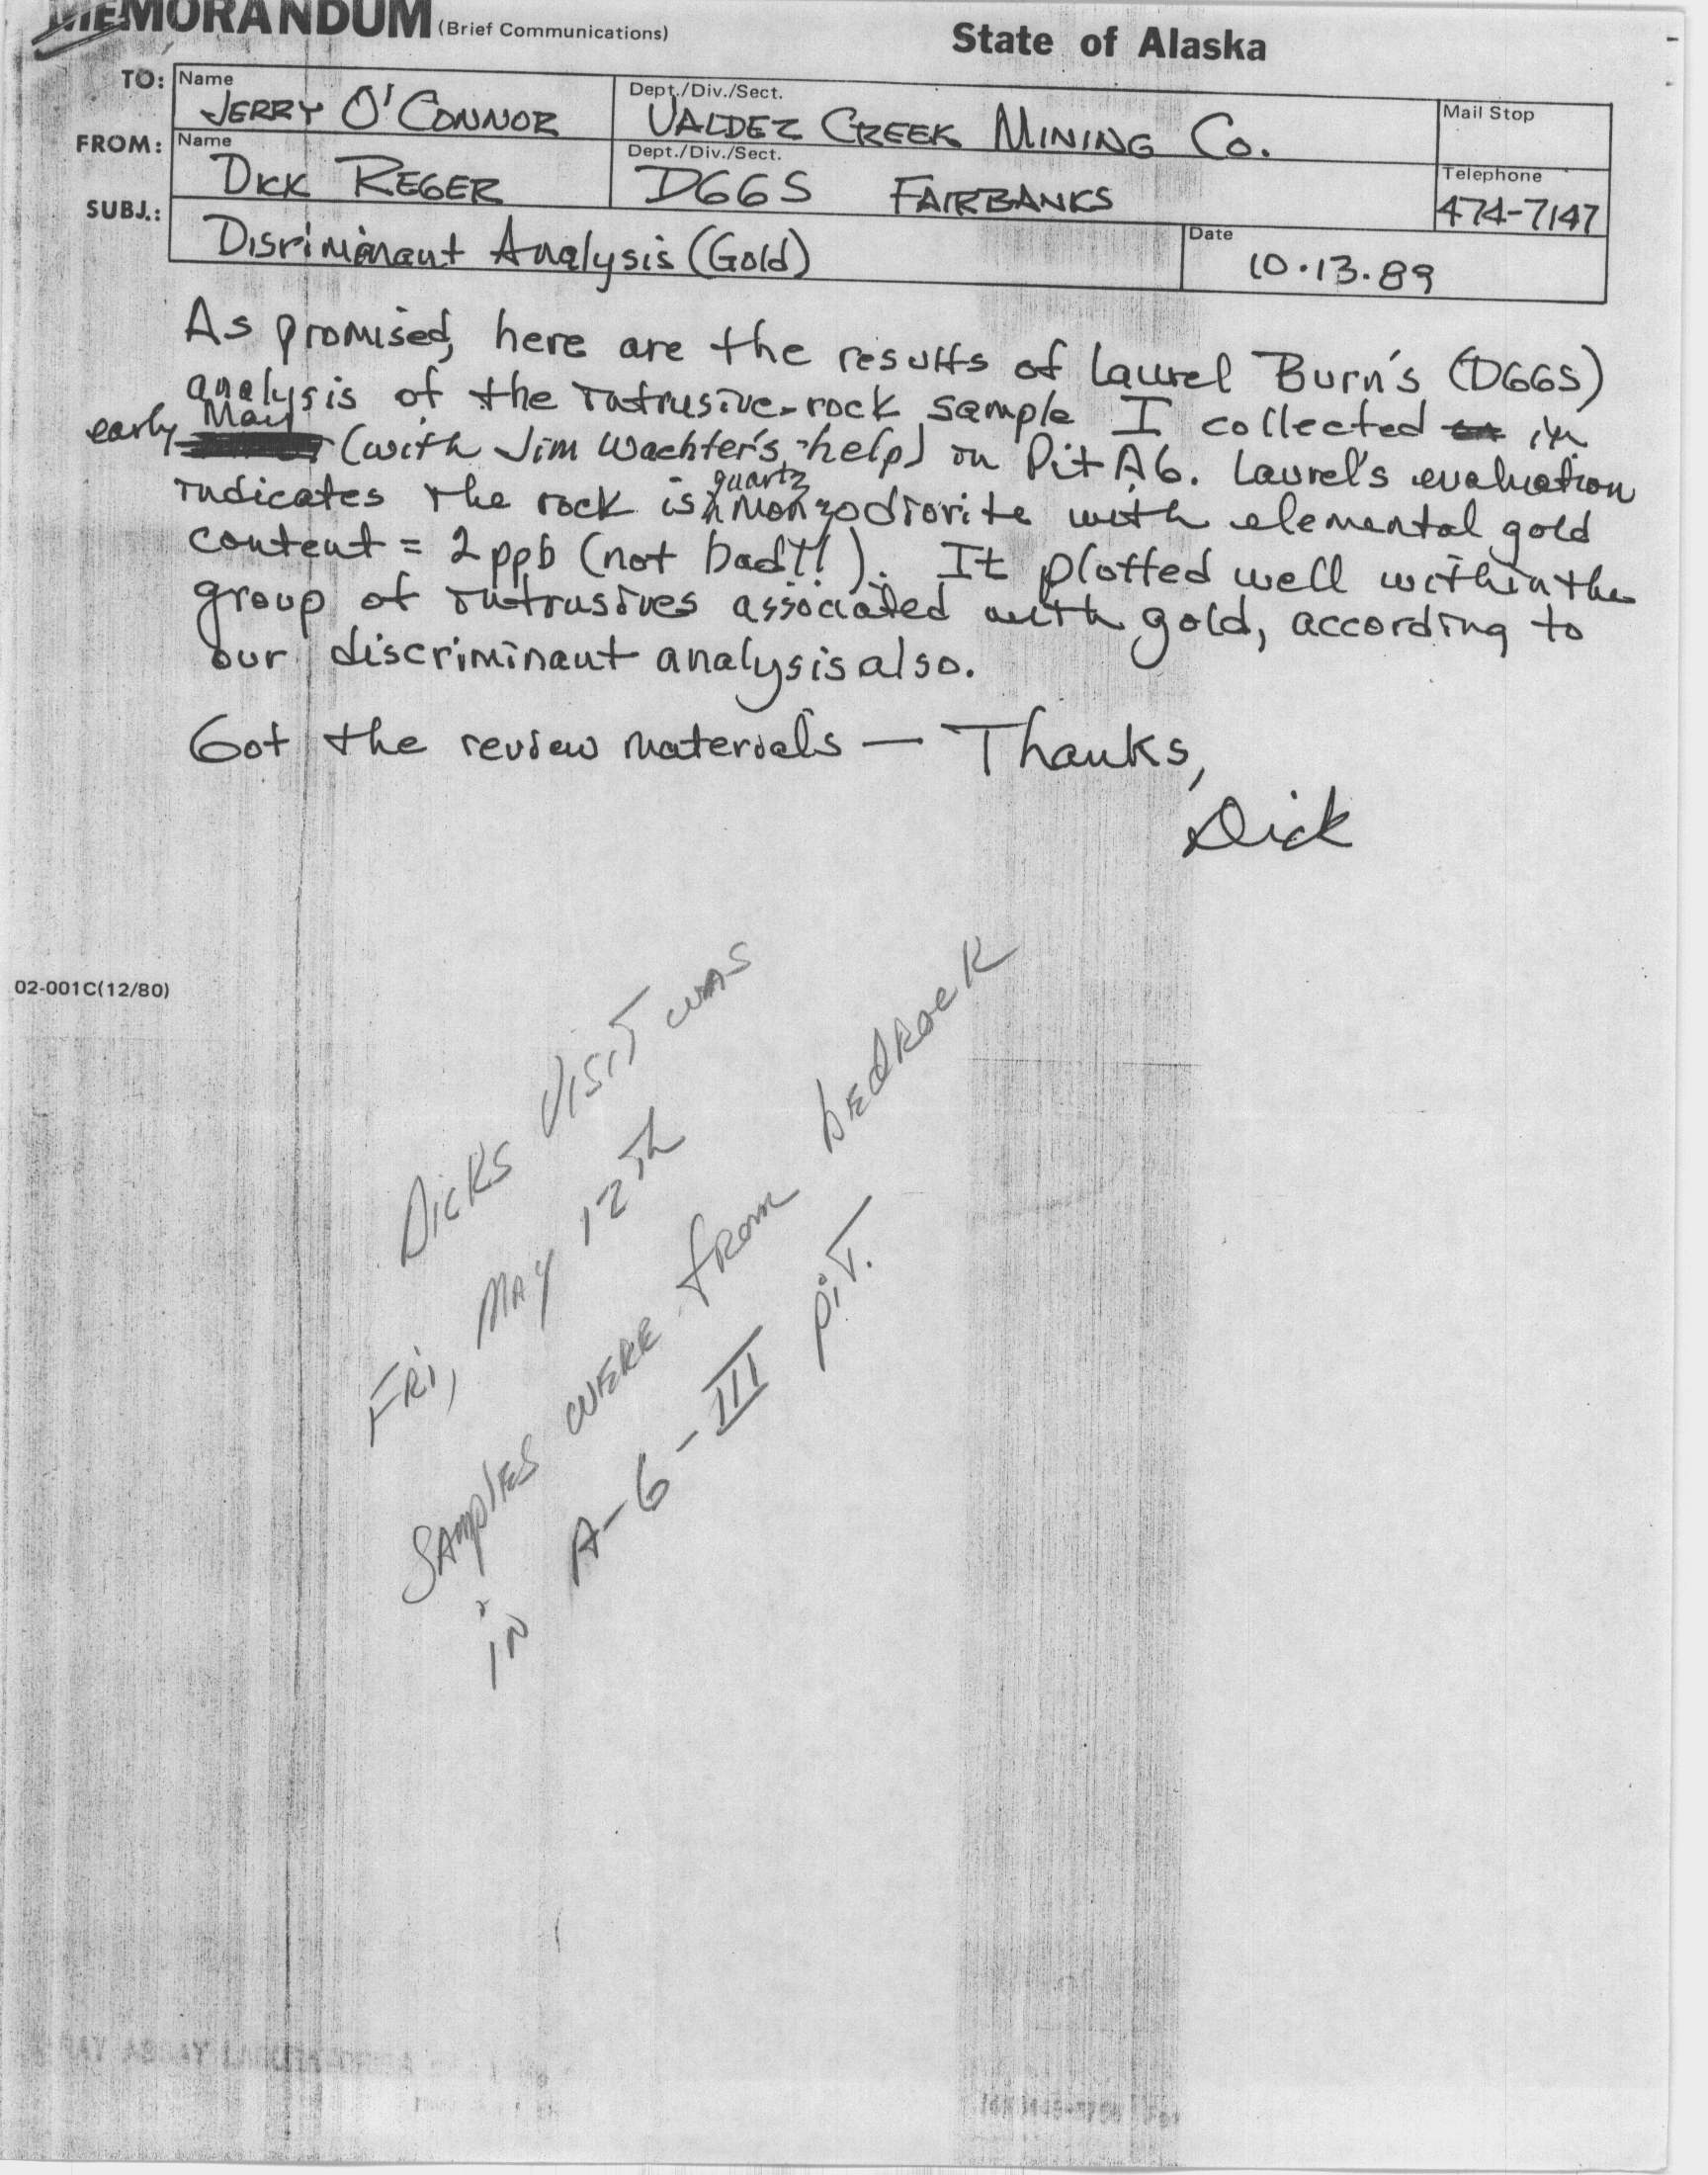 MEMORANDUM (Brief Communications) State of Alaska
TO: Name JERRY O'CONNOR Dept./Div./Sect. VALDEZ CREEK MINING Co. Mail Stop
FROM: Name DICK REGER Dept./Div./Sect. DGGS FAIRBANKS Telephone 474-7147
SUBJ.: Disriminant Analysis (Gold) Date 10.13.89
As promised, here are the results of Laurel Burn's (DGGS)
analysis of the intrusive-rock sample I collected in
early May (with Jim Wachter's help) in Pit A6. Laurel's evaluation
indicates the rock is quartz monzodiorite with elemental gold
content = 2 ppb (not bad!!). It plotted well within the
group of intrusives associated with gold, according to
our discriminant analysis also.
Got the review materials — Thanks,
Dick
02-001C(12/80)
DICKS VISIT WAS
FRI, MAY 12th
SAMPLES WERE from bEdRock
iN A-6-III PiT.